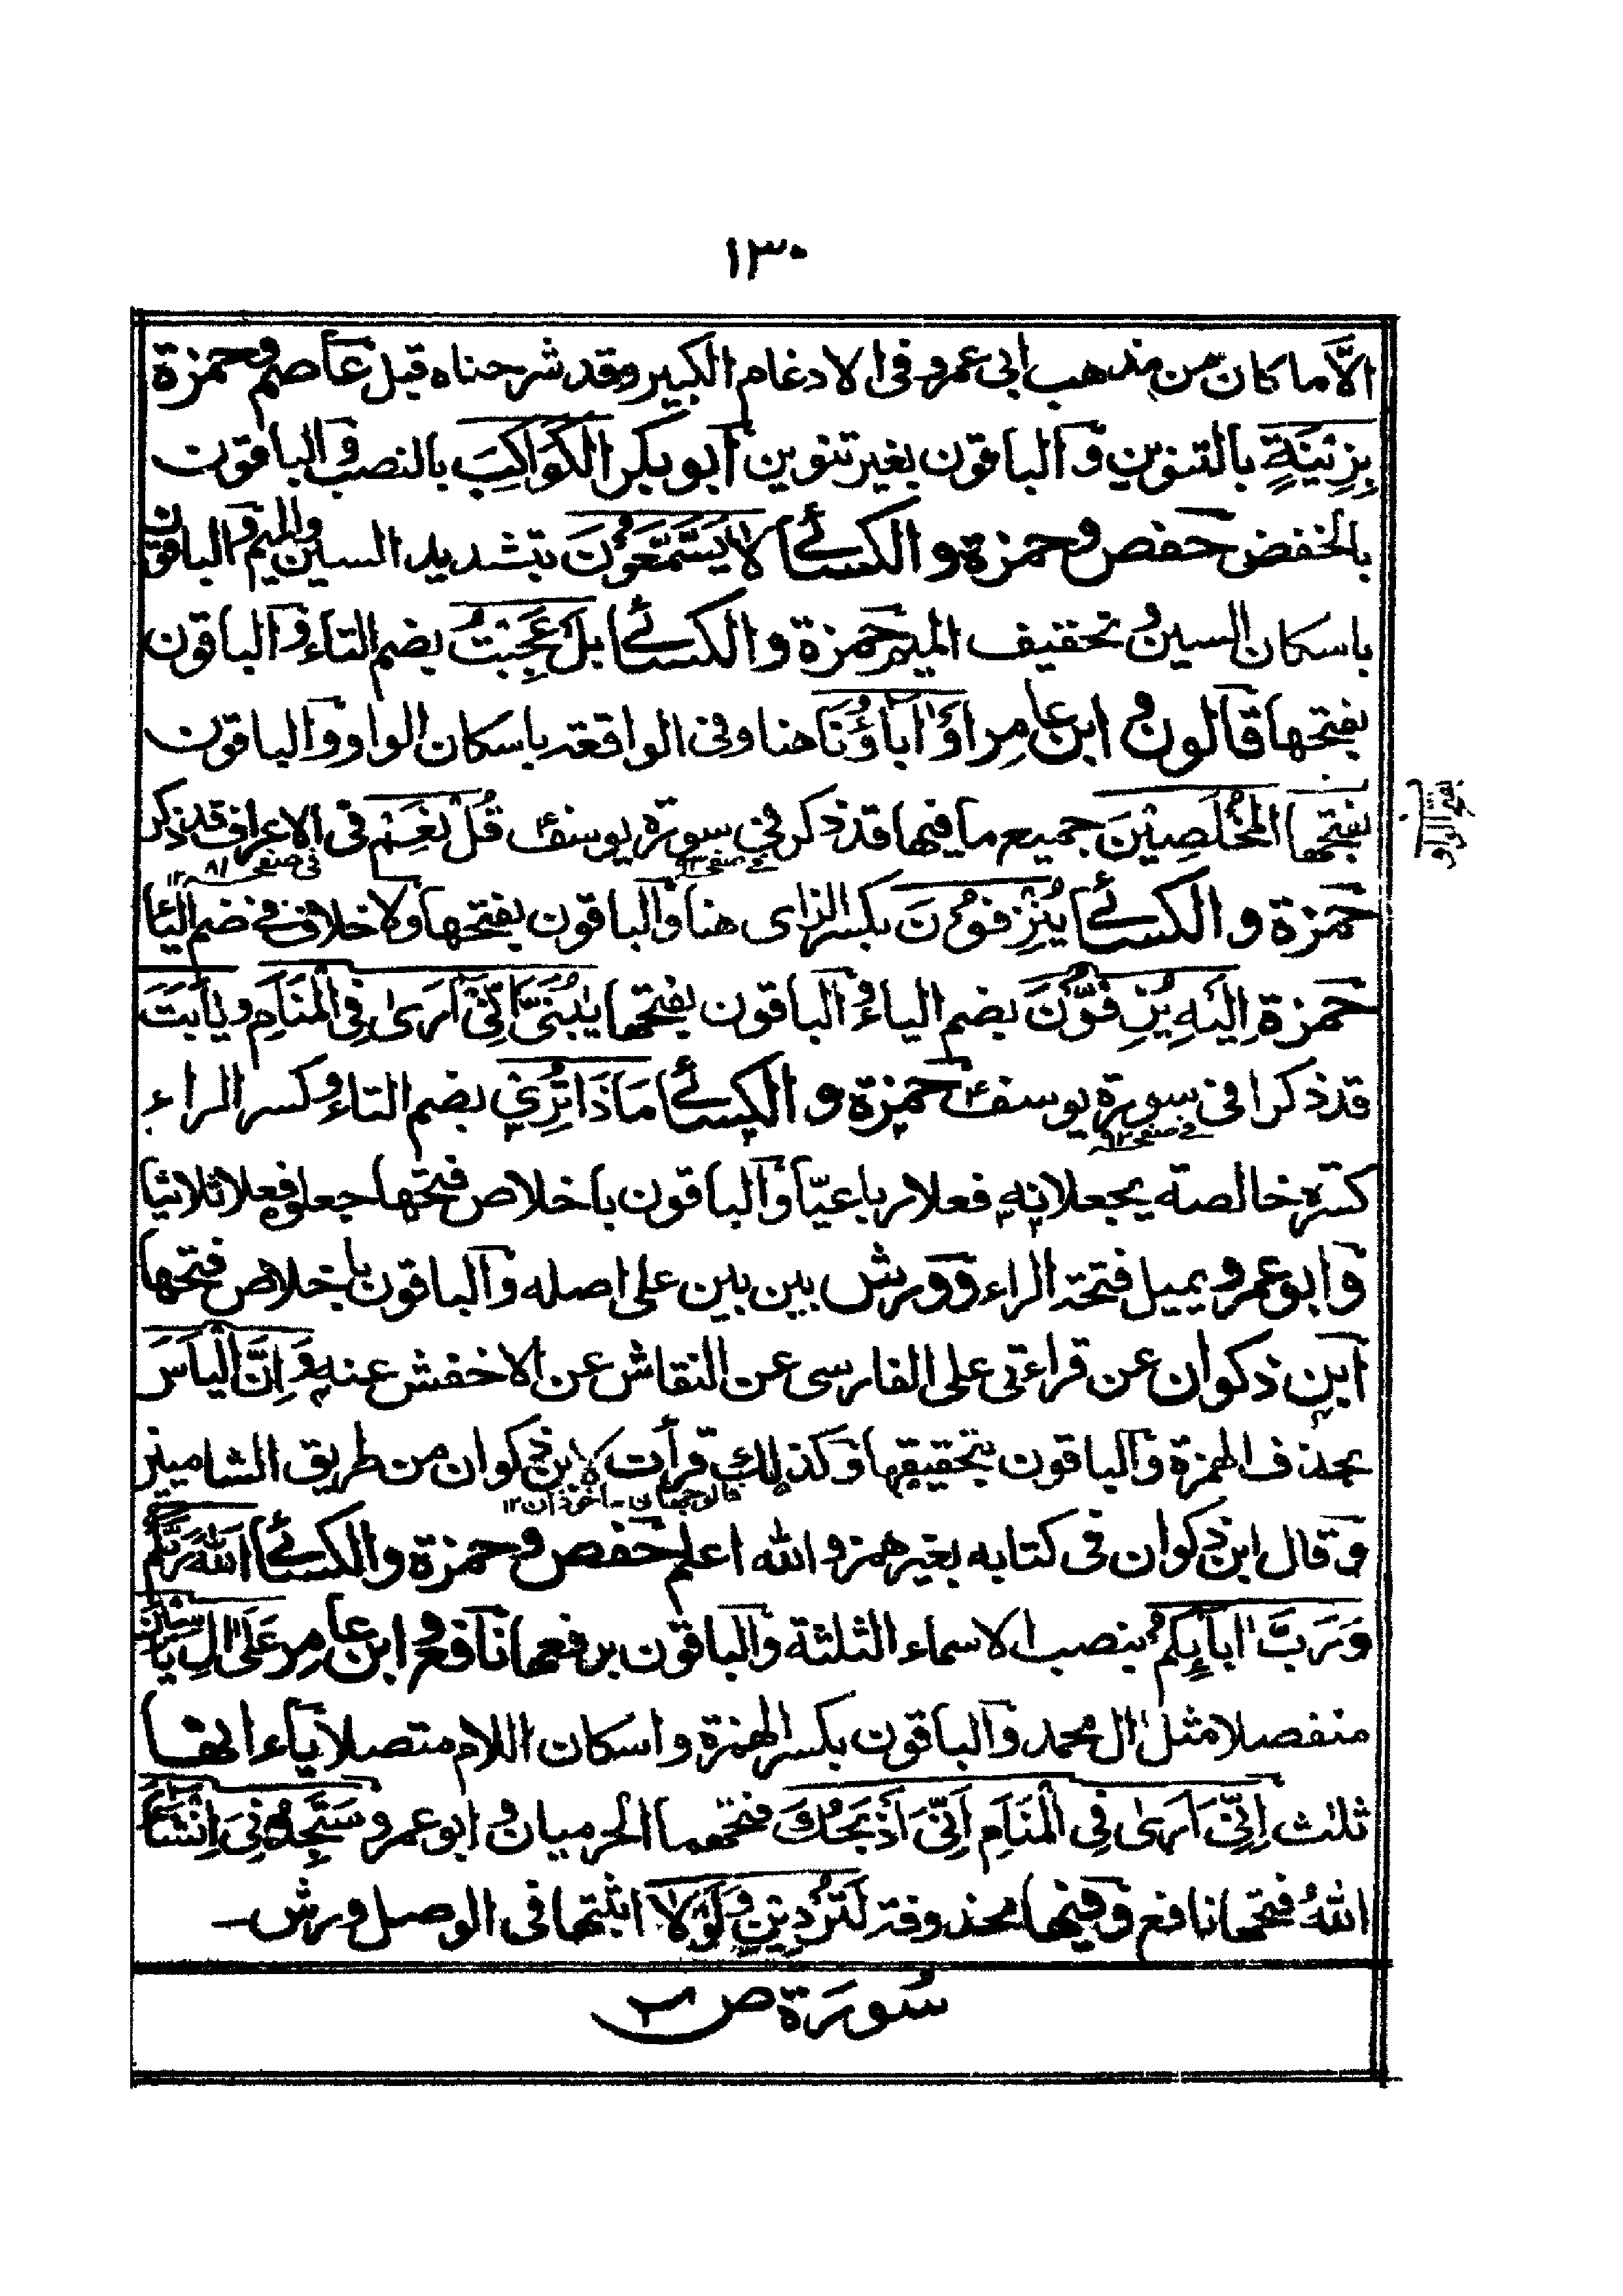 ١٣٠
الّا ما كان من مذهب ابى عمرو فى الادغام الكبير وقد شرحناه قبل عاصم وحمزة
بِزِيْنَةٍ بالتنوين والباقون بغير تنوين ابو بكر الكَوَاكِبَ بالنصب والباقون
بالخفض حفص وحمزة والكسائے لا يَسَّمَّعُوْنَ بتشديد السين والميم والباقون
باسكان السين وتحفيف الميم حمزة والكسائے بَلْ عَجِبْتُ بضم التاء والباقون
بفتحها قالون وابن عامر اَوْ اٰبَاؤُنَا هنا وفى الواقعة باسكان الواو والباقون
بفتحها المُخْلَصِيْنَ جميع ما فيها قد ذكر فى سورة يوسف قُلْ نَعَمْ فى الاعراف قد ذكر
بفتح الواو
فى صفحه ٨١ ١٢
حمزة والكسائے يُنْزِفُوْنَ بكسر الزاى هنا والباقون بفتحها ولا خلاف فى ضم اليا
حمزة اِلَيْهِ يُزِفُّوْنَ بضم الياء والباقون بفتحها يٰبُنَىَّ اِنِّىْ اَرٰى فِى الْمَنَامِ ويٰاَبَتَ
قد ذكرا فى سورة يوسف حمزة والكسائے مَاذَا تُرِىْ بضم التاء وكسر الراء
كسرة خالصة يجعلانه فعلا رباعيّا والباقون باخلاص فتحها جعلوه فعلا ثلاثيا
وابو عمرو يميل فتحة الراء وورش بين بين على اصله والباقون باخلاص فتحها
ابن ذكوان عن قراءتى على الفارسى عن النقاش عن الاخفش عنه وَاِنَّ الْيَاسَ
بحذف الهمزة والباقون بتحقيقها وكذلك قرأت لابن ذكوان من طريق الشاميين
وقال ابن ذكوان فى كتابه بغير همز والله اعلم حفص وحمزة والكسائے اللهَ رَبَّكُمْ
وَرَبَّ اٰبَائِكُمُ بنصب الاسماء الثلثة والباقون برفعها نافع وابن عامر عَلٰى اٰلِ يَاسِيْنَ
منفصلا مثل اٰل محمد والباقون بكسر الهمزة واسكان اللام متصلا ياءاتها
ثلث اِنِّىْ اَرٰى فِى الْمَنَامِ اَنِّىْ اَذْبَحُكَ فتحهما الحرميان وابو عمرو سَتَجِدُنِىْ اِنْشَاءَ
اللهُ فتحها نافع وفيها محذوفة لَتُرْدِيْنِ وَلَوْلَا اثبتها فى الوصل ورش
سُورَة ص